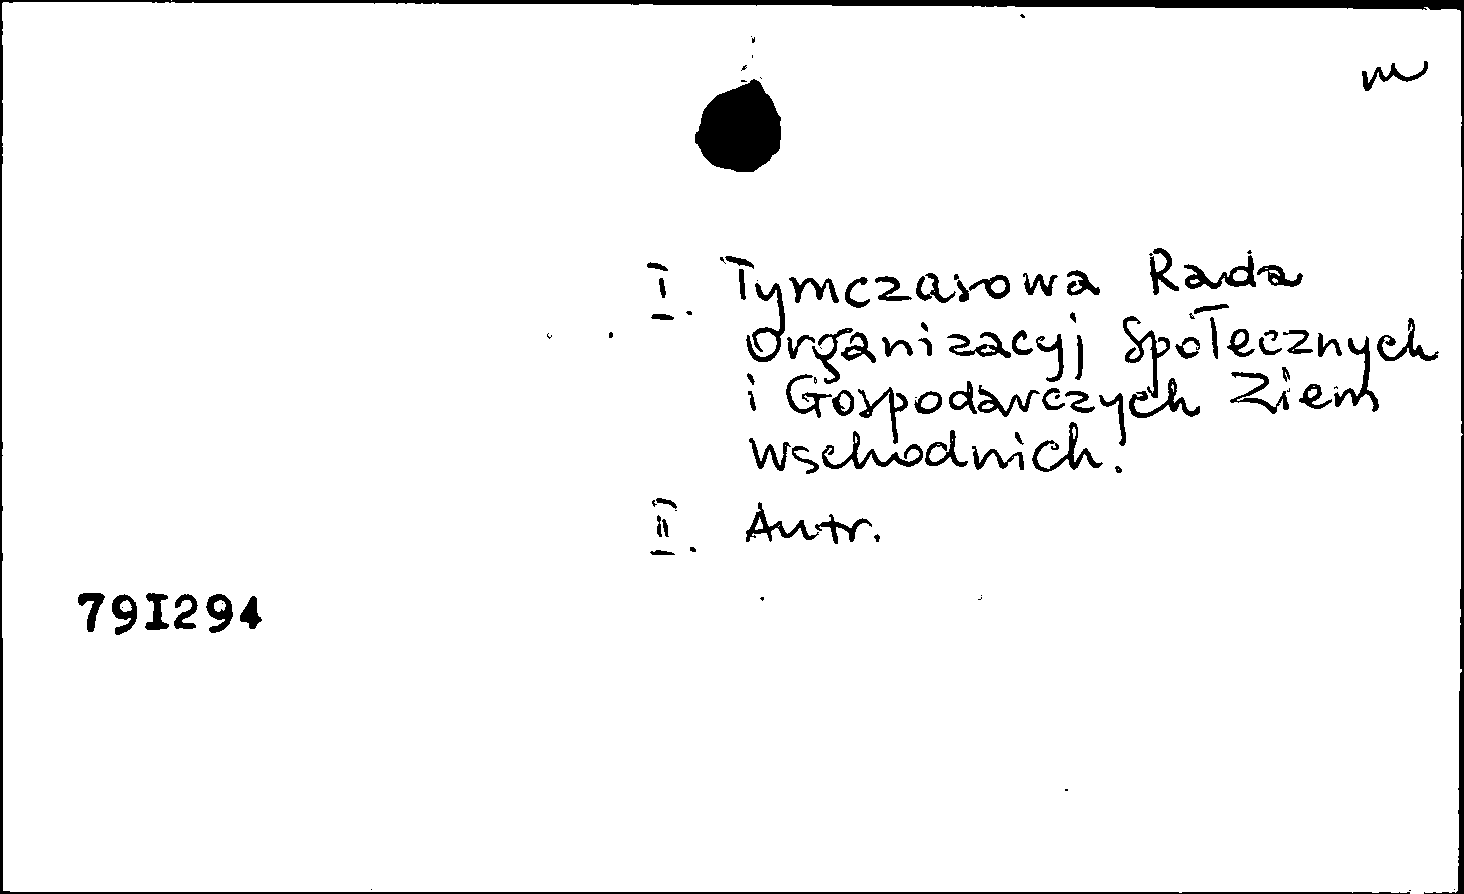 m
I. Tymczasowa Rada
Organizacyj Społecznych
i Gospodarczych Ziem
Wschodnich.
II. Autr.
79I294